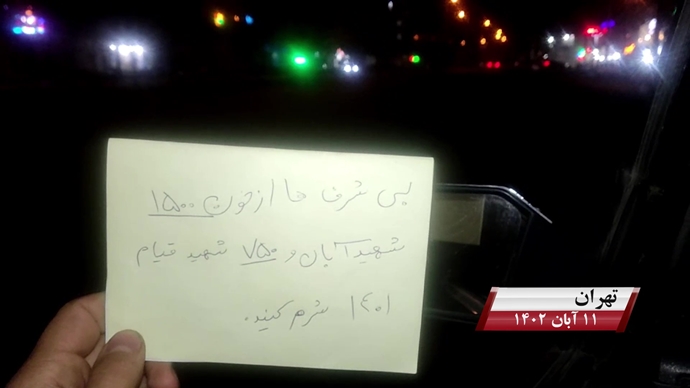 بی شرف ها از خون ۱۵۰۰
شهید آبان و ۷۵۰ شهید قیام
۱۴۰۱ شرم کنید.
تهران
۱۱ آبان ۱۴۰۲